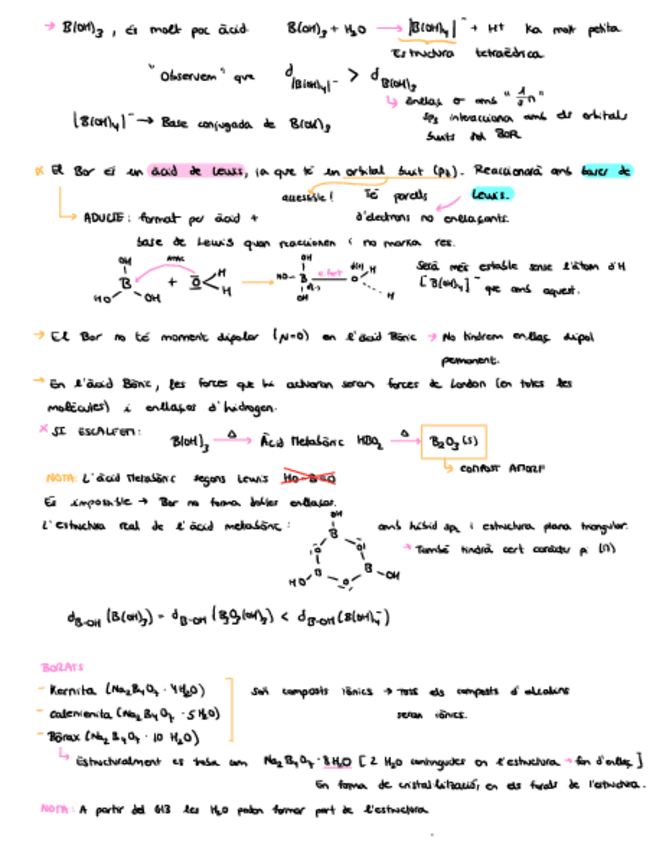 → B(OH)₃, és molt poc àcid B(OH)₃ + H₂O → |B(OH)₄|⁻ + H⁺ Ka molt petita
Estructura tetraèdrica
"Observem" que d|B(OH)₄|⁻ > dB(OH)₃
↳ enllaç σ amb "
sp₃ interacciona amb els orbitals
buits del BOR
[B(OH)₄]⁻ → Base conjugada de B(OH)₃
El Bor és un àcid de Lewis, ja que té un orbital buit (p₂). Reaccionarà amb bases de
accessible! Té parells Lewis.
↳ ADUCTE: format per àcid + d'electrons no enllaçants.
base de Lewis quan reaccionen i no marxa res.
OH atac OH
B + O H HO - B e. fort O H
HO OH H OH H
Serà més estable sense l'àtom d'H
[B(OH)₄]⁻ que amb aquest.
→ El Bor no té moment dipolar (μ=0) en l'àcid Bòric → No tindrem enllaç dipol
permanent.
→ En l'àcid Bòric, les forces que hi actuaran seran forces de London (en totes les
molècules) i enllaços d'hidrogen.
× SI ESCALFEM: B(OH)₃ →Δ Àcid Metabòric HBO₂ →Δ B₂O₃(s)
↳ COMPOST AMORF
NOTA: L'àcid Metabòric segons Lewis HO-B=O
És impossible → Bor no forma dobles enllaços.
L'estructura real de l'àcid metabòric: amb híbid sp₂ i estructura plana triangular.
→ També tindrà cert caràcter p (π)
OH
B
O O
B B
HO O OH
dB-OH (B(OH)₃) = dB-OH (B₃O₃(OH)₃) < dB-OH (B(OH)₄⁻)
BORATS
- Kernita (Na₂B₄O₇ · 4H₂O) Són composts iònics → Tots els composts d'alcalins
- calenienita (Na₂B₄O₇ · 5H₂O) seran iònics.
- Bòrax (Na₂B₄O₇ · 10 H₂O)
↳ Estructuralment es troba com Na₂B₄O₇ · 8H₂O [2 H₂O contingudes en l'estructura → fan d'enllaç]
En forma de cristal·lització, en els forats de l'estructura.
NOTA: A partir del G13 les H₂O poden formar part de l'estructura